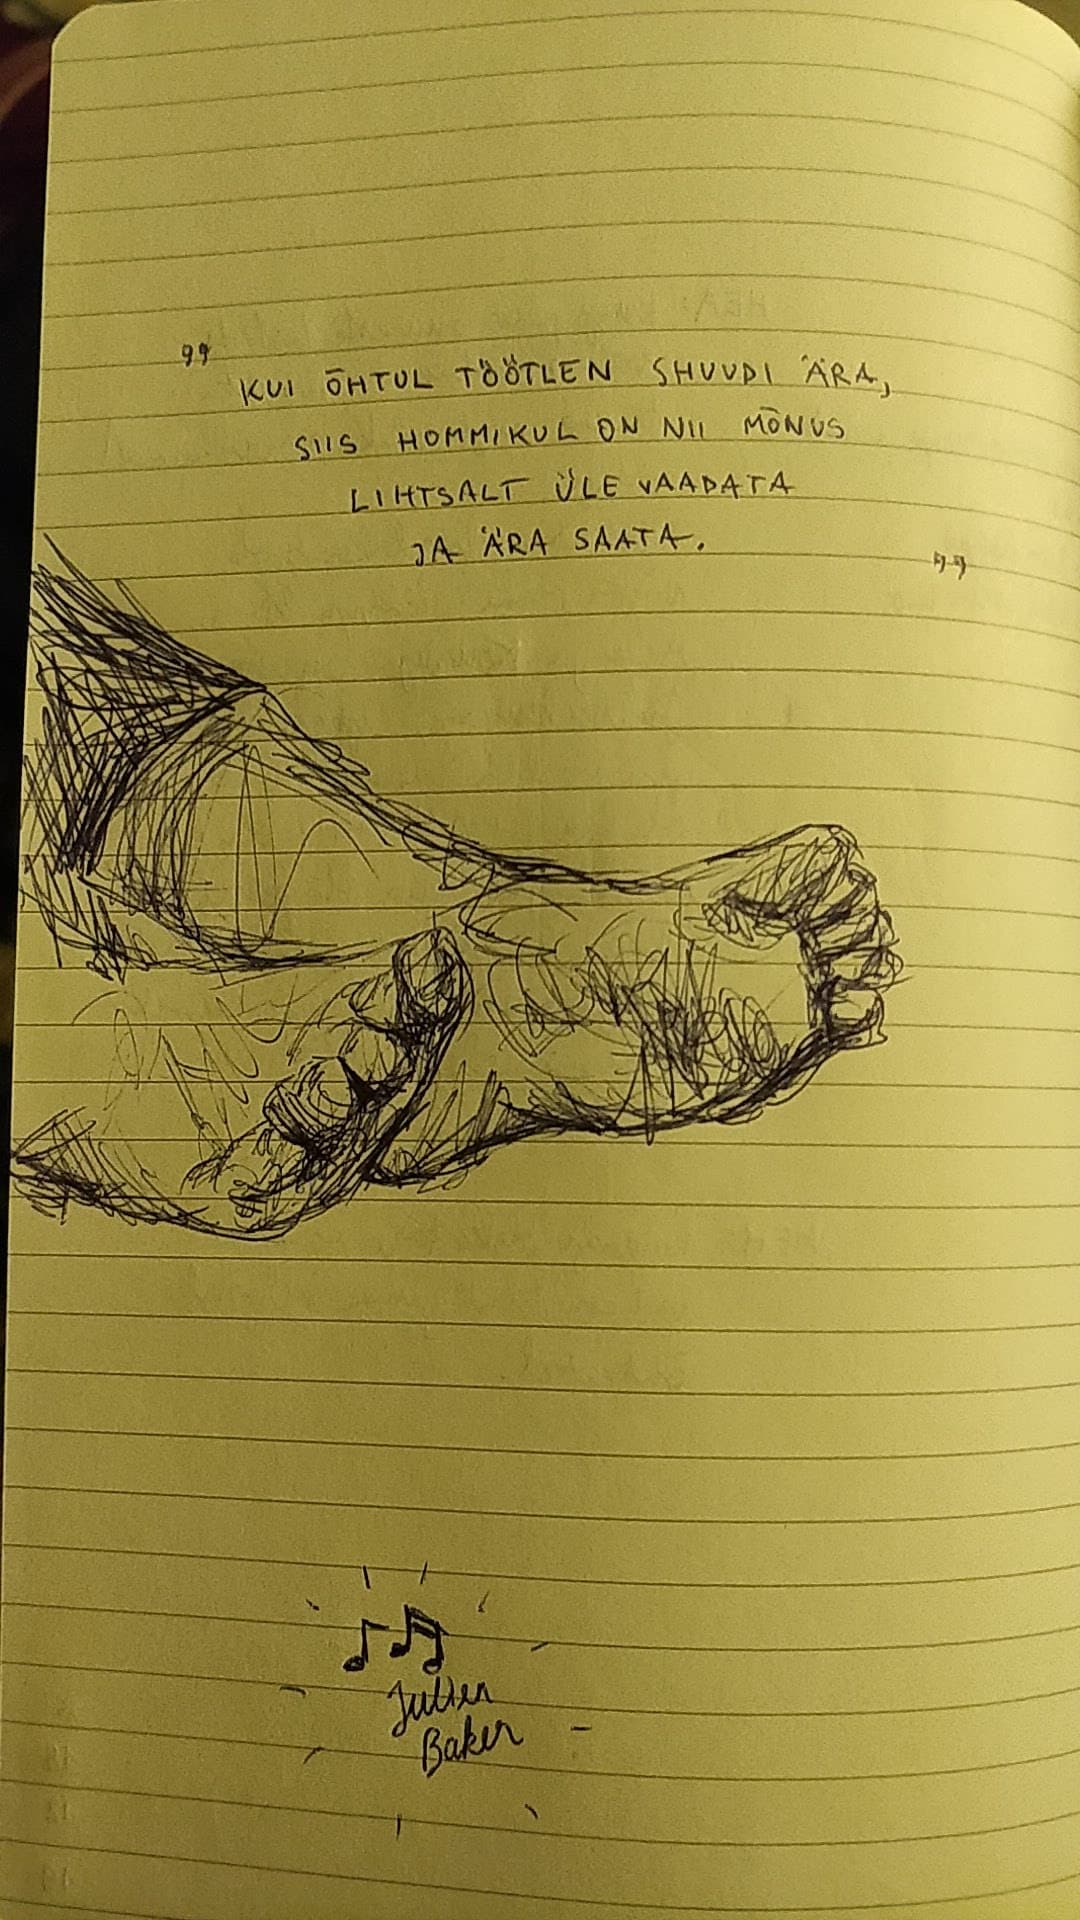 " KUI ÕHTUL TÖÖTLEN SHUUDI ÄRA,
SIIS HOMMIKUL ON NII MÕNUS
LIHTSALT ÜLE VAADATA
JA ÄRA SAATA. "
Julien
Baker